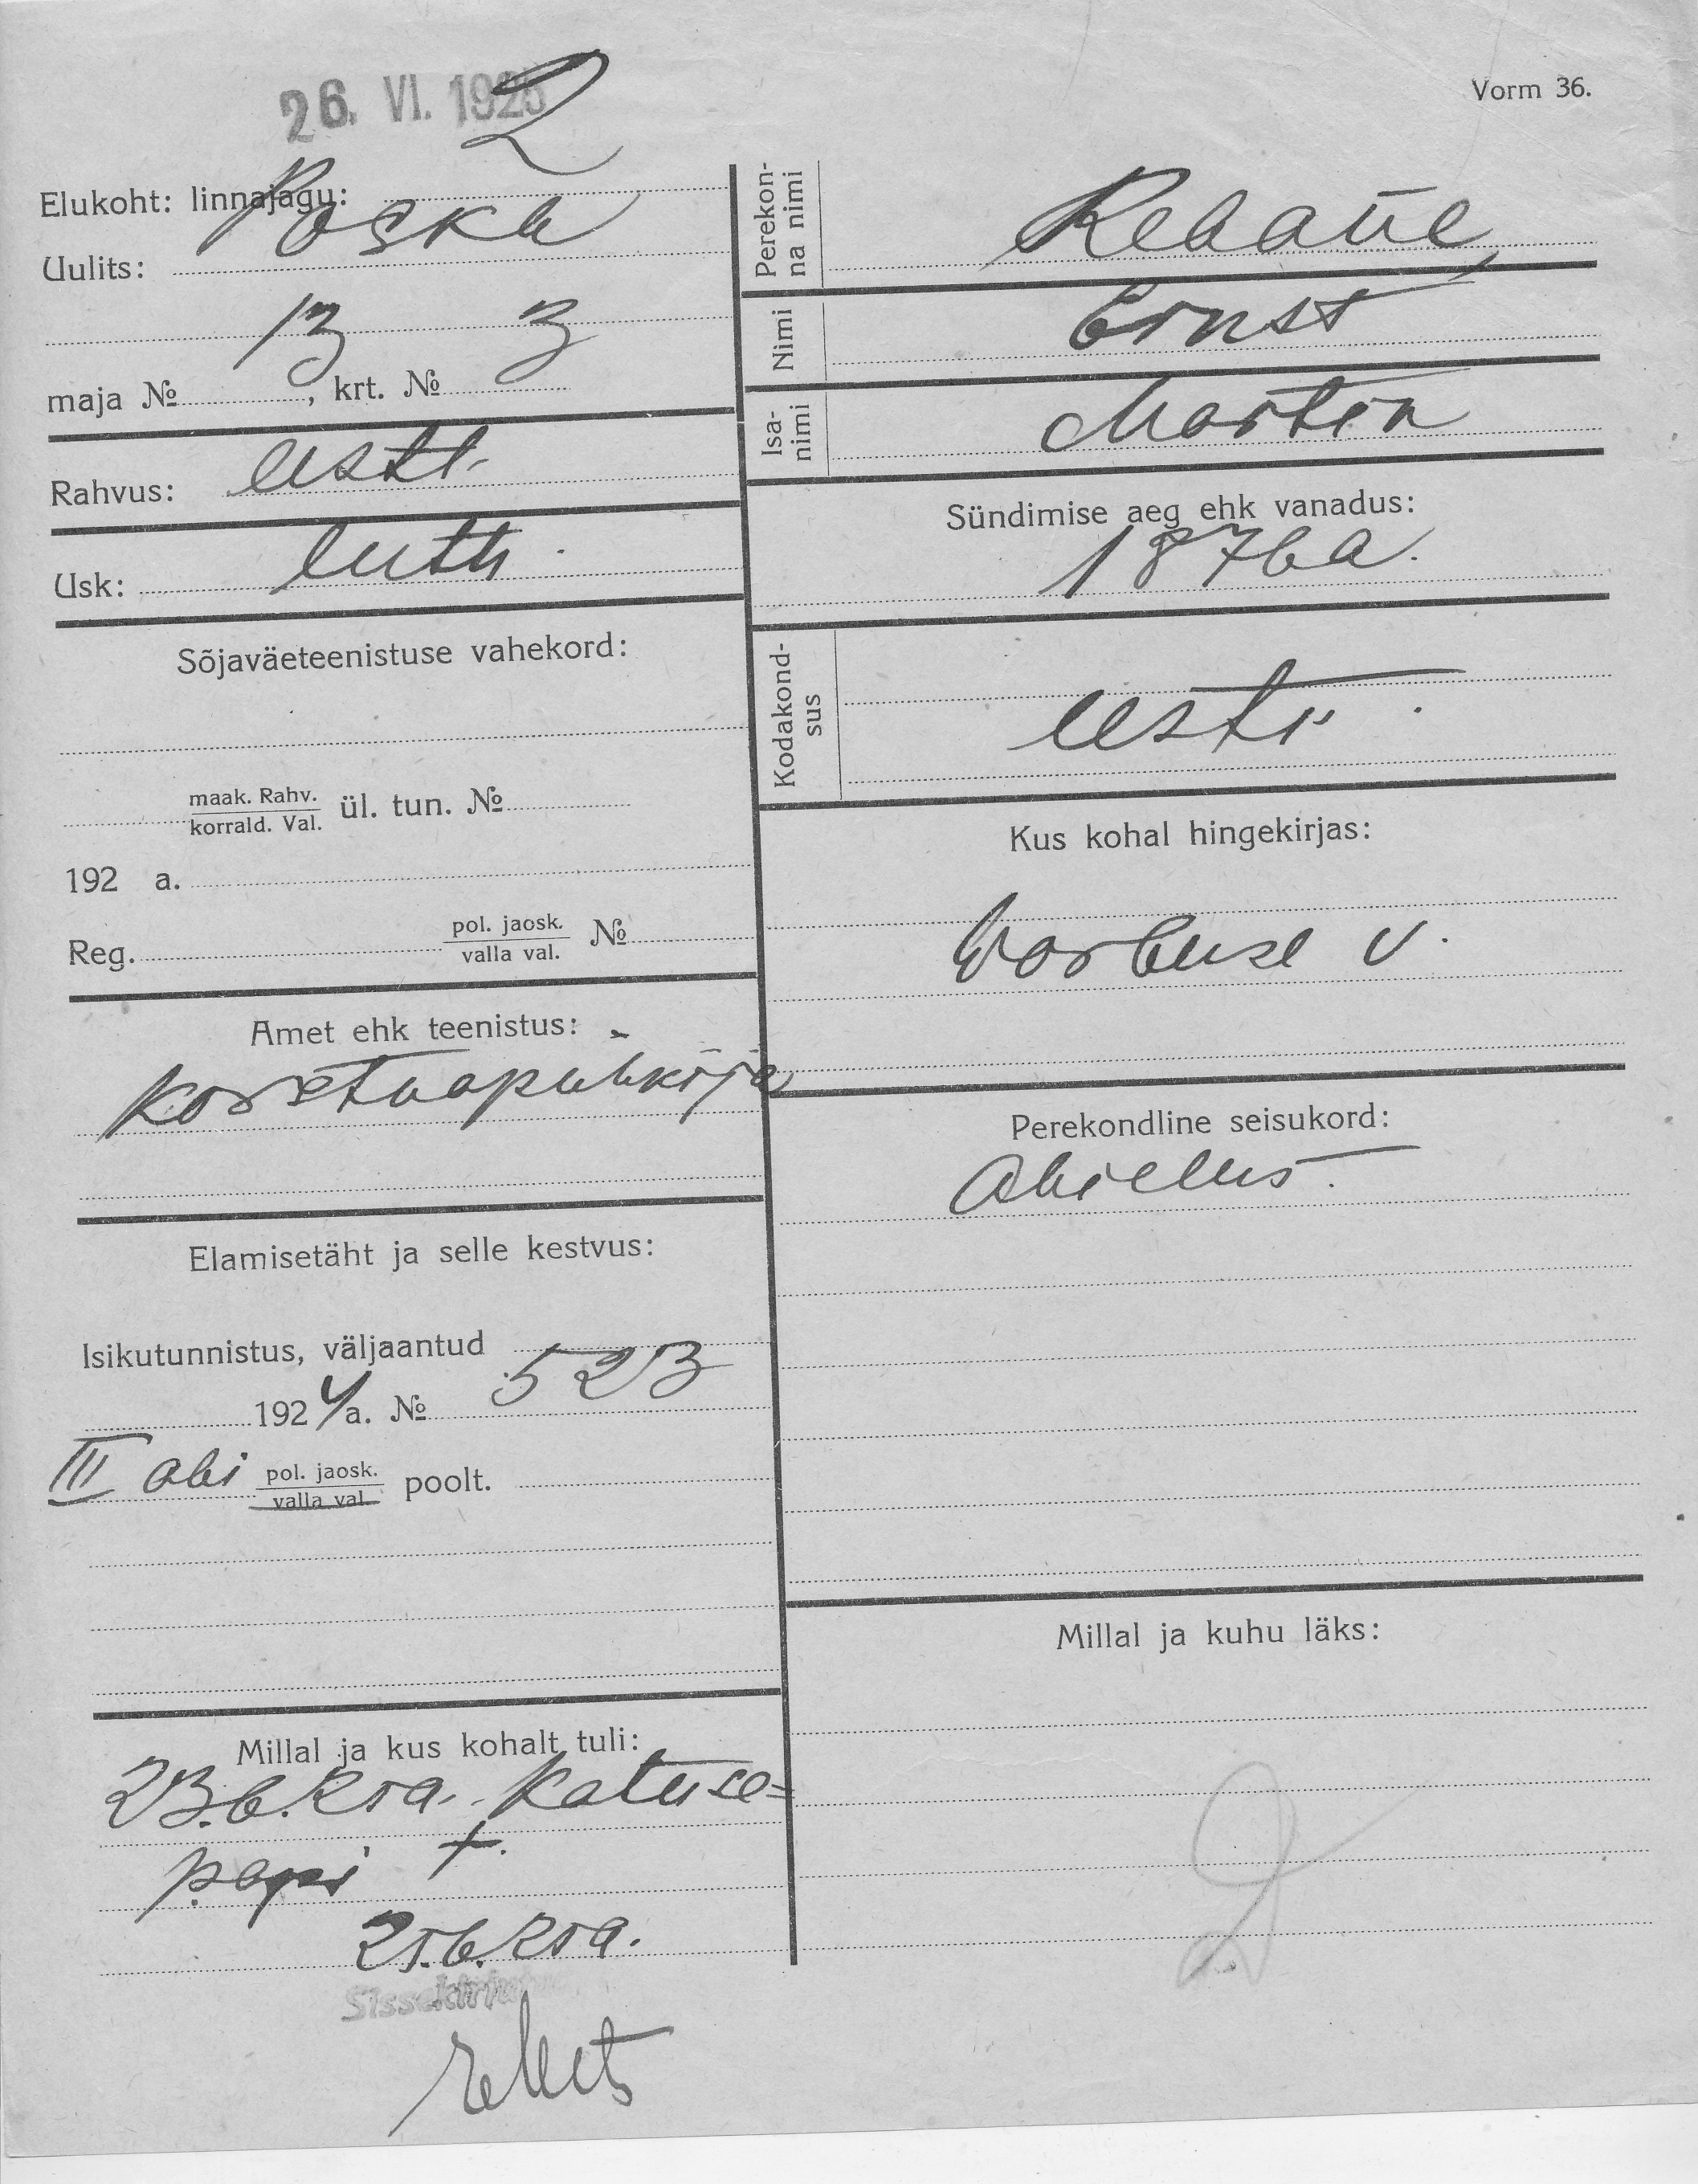 26. VI. 1925
2
Vorm 36.
Elukoht: linnajagu:
Poska
Uulits:
13 3
maja № , krt. №
Rahvus: eesti
Usk: luth.
Sõjaväeteenistuse vahekord:
maak. Rahv.
korrald. Val. ül. tun. №
192 a.
Reg. pol. jaosk.
valla val. №
Amet ehk teenistus:
Korstnapühkija
Elamisetäht ja selle kestvus:
Isikutunnistus, väljaantud
1924 a. № 523
III abi pol. jaosk.
valla val. poolt.
Millal ja kus kohalt tuli:
23.6. Katuse=
papi t.
25.6.
Sissekirju
Perekon-
na nimi
Rebane
Nimi
Ernst
Isa-
nimi
Martin
Sündimise aeg ehk vanadus:
1876 a.
Kodakond-
sus
eesti.
Kus kohal hingekirjas:
Worbuse v.
Perekondline seisukord:
Abielus.
Millal ja kuhu läks: